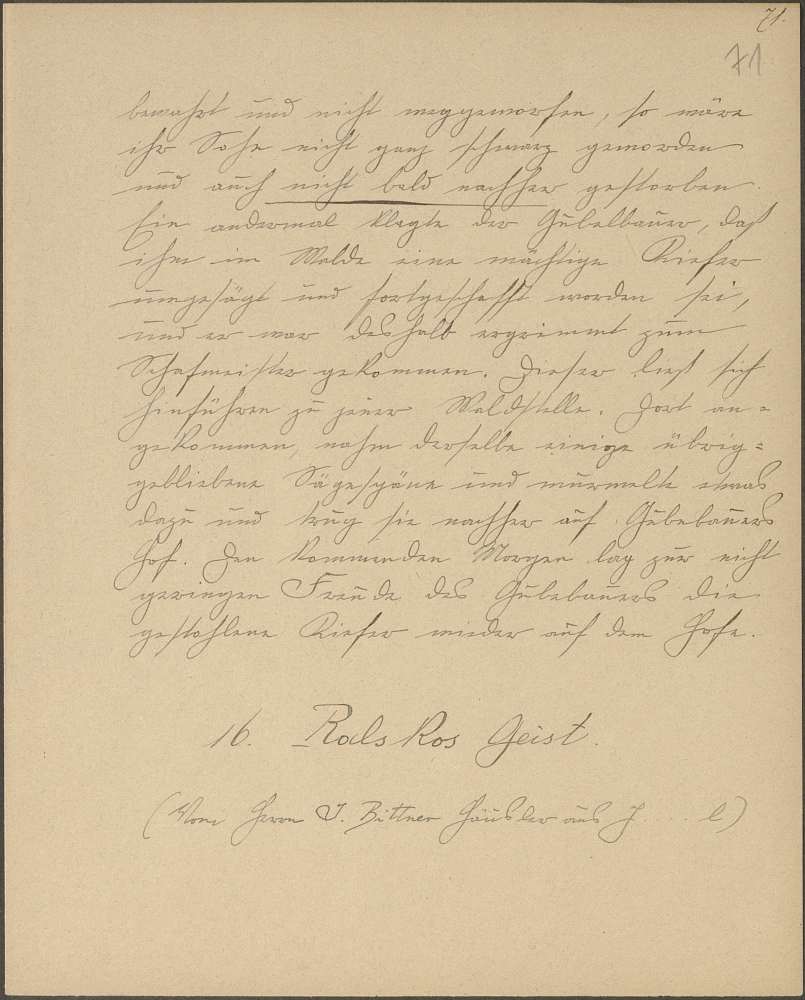 71.
71
bewahrt und nicht weggeworfen, so wäre
ihr Sohn nicht ganz schwarz geworden
und auch nicht bald nachher gestorben.
Ein andermal klagte der Gübelbauer, daß
ihm im Walde eine mächtige Kiefer
umgesägt und fortgeschafft worden sei,
und er war deshalb ergrimmt zum
Schafmeister gekommen. Dieser ließ sich
hinführen zu jener Waldstelle. Dort an=
gekommen, nahm derselbe einige übrig=
gebliebene Sägespäne und murmelte etwas
dazu und trug sie nachher auf Gübebauers
Hof. Den kommenden Morgen lag zur nicht
geringen Freude des Gübebauers die
gestohlene Kiefer wieder auf dem Hofe.
16. Ralskos Geist.
(Vom Herrn J. Bittner Häusler aus H.... l)